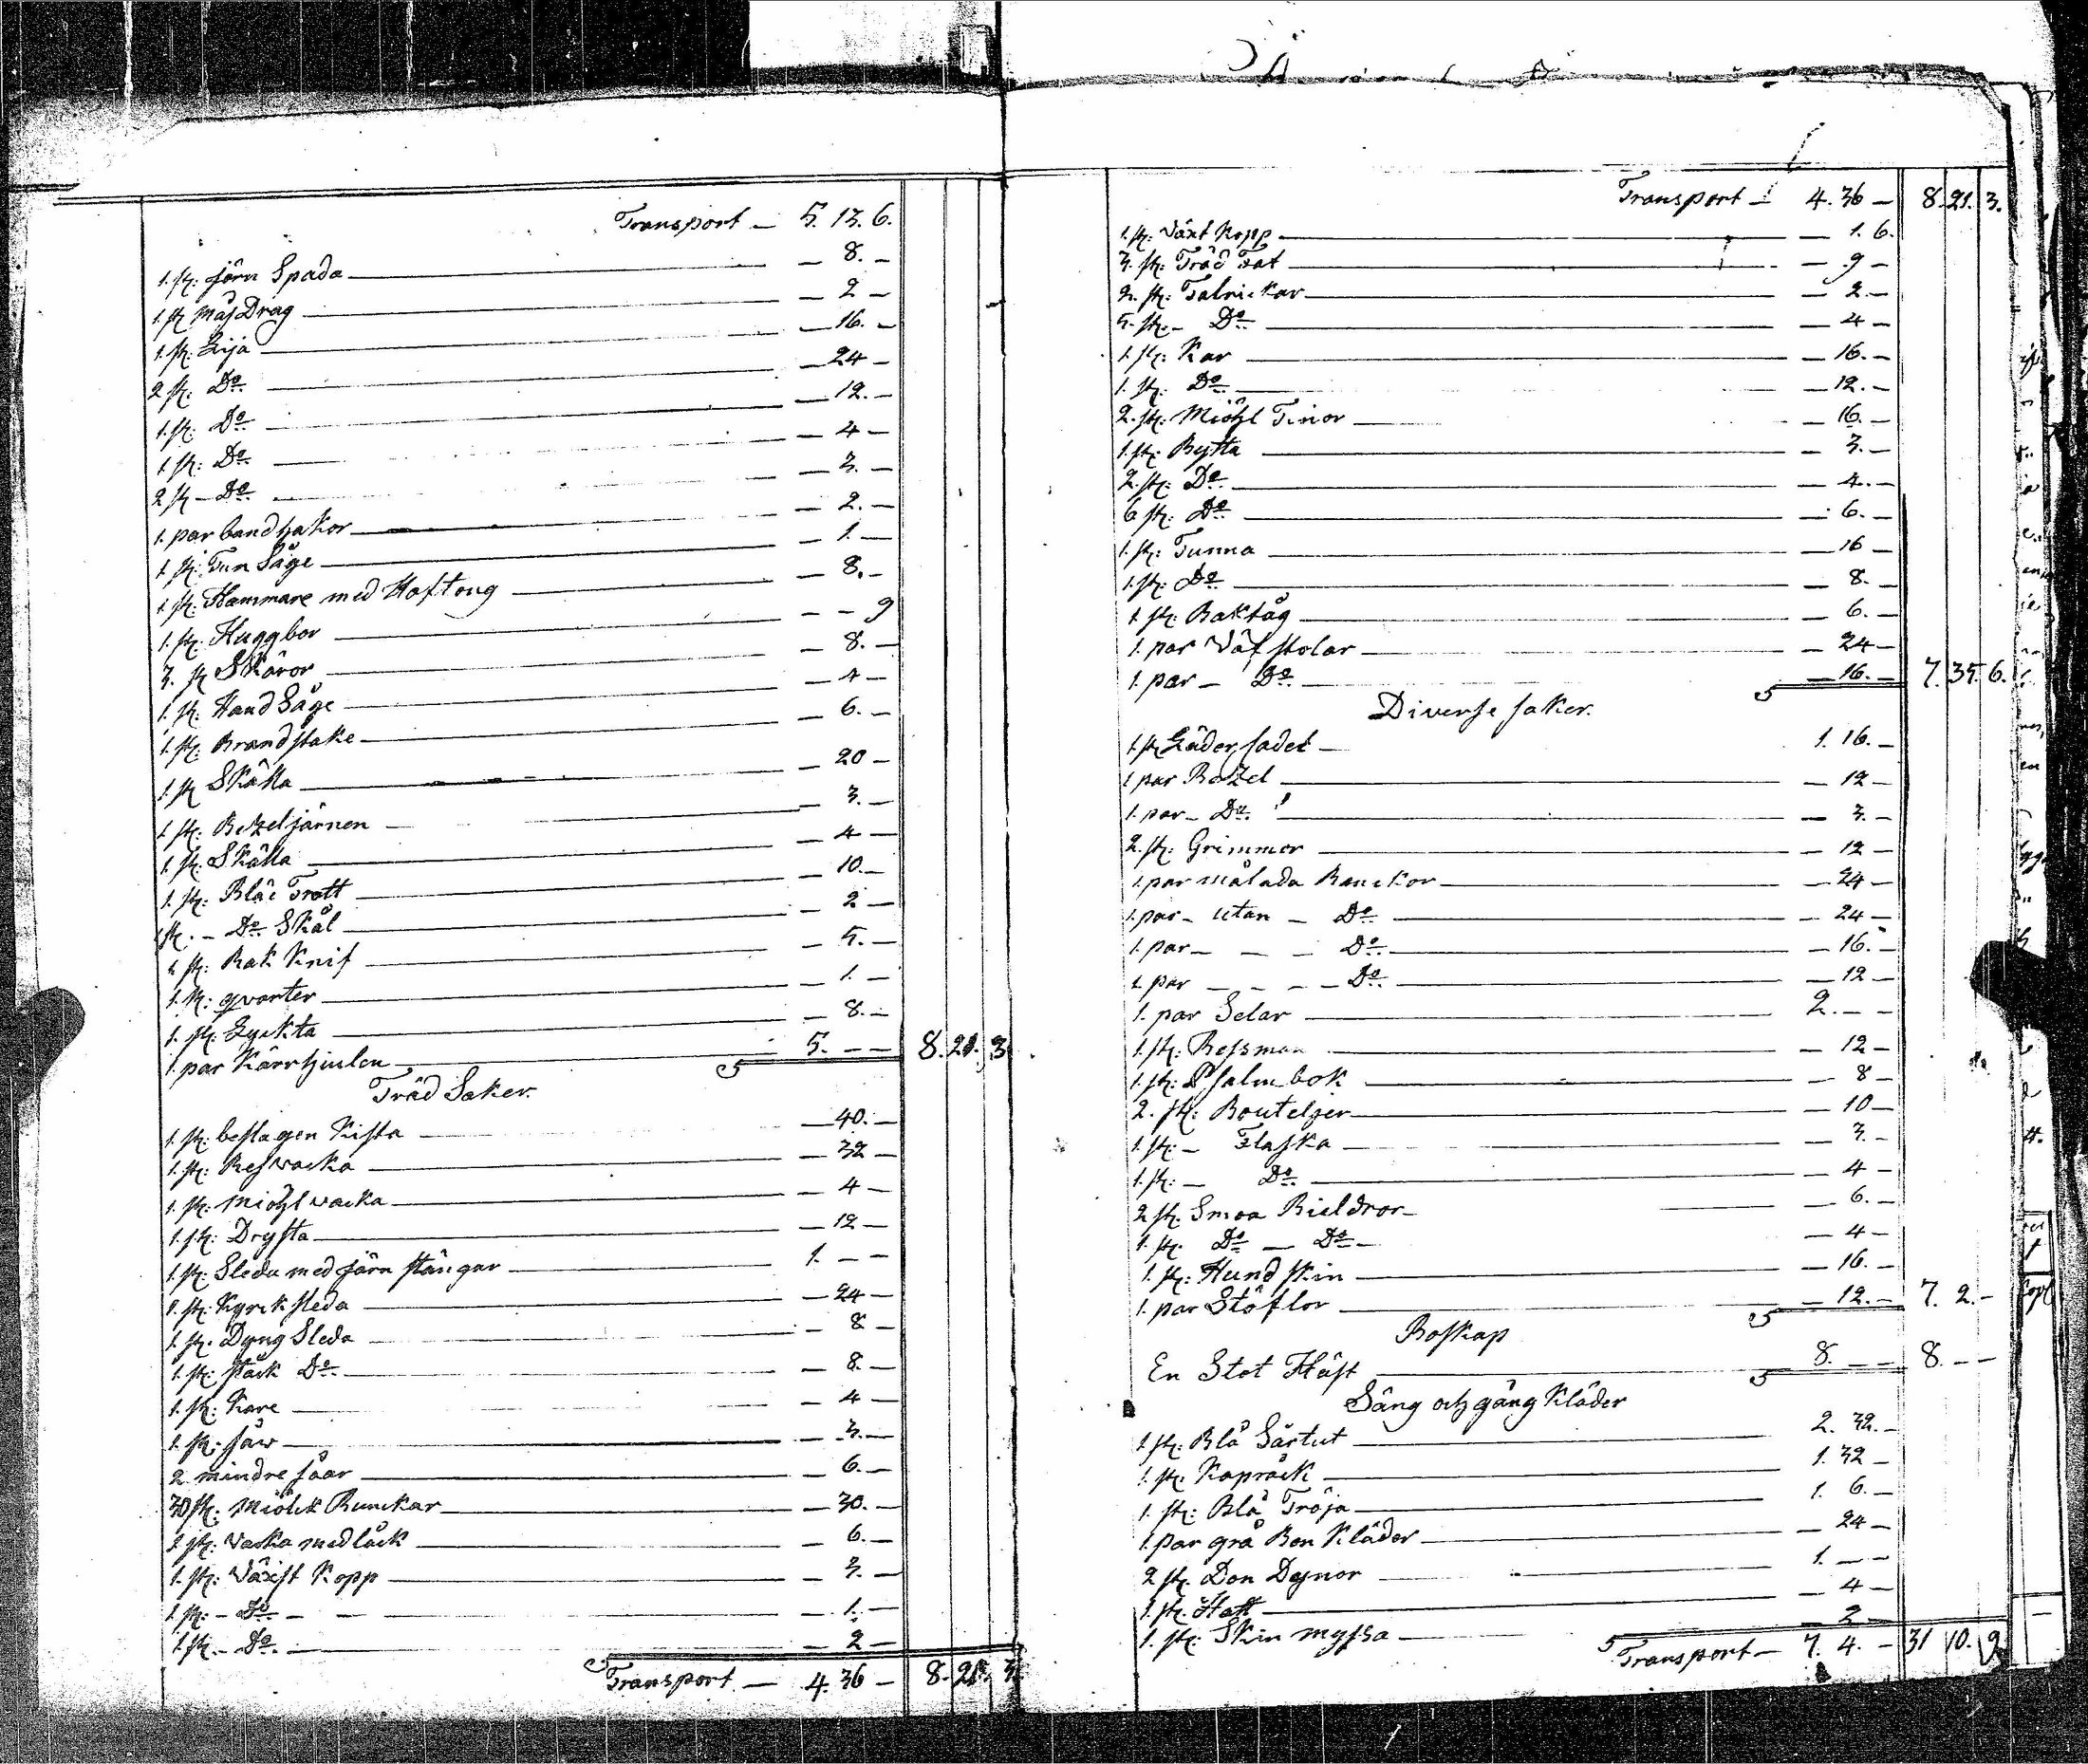 Transport — 5. 13. 6.
1. st: järn Spada — 8. —
1. st Drag — 2 —
1. st: Lija — 16. —
2 st. Do — 24 —
1. st: Do — 12. —
1. st: Do — 4 —
2 st — Do — 3. —
1. par band hakor — 2. —
1 st: Tun Såge — 1. —
1 st: Hammare med Hoftong — 8. —
1. st: Huggbor — — 9
3. st Skäror — 8. —
1. st: Hand Såge — 4 —
1. st: Brandstake — 6. —
1 st Skälla — 20 —
1 st: Betzeljärnen — 3. —
1. st: Skälla — 4 —
1. st: Bläc Tratt — 10. —
1 st. — Do Skål — 2 —
1 st: Rak Knif — 5. —
1. st: qvarter — 1. —
1. st: Lyckta — 8. —
1 par Kärrhjulen — 5. — — 8. 21. 3
Träd Saker.
1. st: beslagen Kista — 40. —
1. st: Reswacka — 32 —
1. st: Miöhlwacka — 4 —
1. st: Drysta — 12 —
1 st: Sleda med järn stänger — 1. — —
1. st: Kyrck sleda — 24 —
1 st. Dyng Sleda — 8 —
1 st: stäck Do — 8. —
1 st: Kare — 4 —
1 st: såw — 3. —
2 mindre såar — 6. —
30 st: Miölck Bunckar — 30. —
1 st: vacka med låck — 6. —
1. st: Växist Kopp — 3. —
1 st: — Do — — 1. —
1. st. — Do — 2 —
Transport — 4. 36 — 8. 21. 3.
Transport — 4. 36 — 8. 21. 3.
1. st: Växt Kopp — 1. 6.
3. st: Träd Fat — 9 —
2. st: Talrickar — 2. —
5. st. — Do — 4 —
1. st: Kar — 16. —
1. st: Do — 12. —
2. st: Miöhl Tinor — 16. —
1 st: Bytta — 3. —
2. st: Do — 4. —
6 st: Do — 6. —
1 st: Tunna — 16 —
1. st: Do — 8. —
1 st: Baktåg — 6. —
1. par Väf stolar — 24 —
1. par — Do — 16. — 7. 35. 6.
Diverse saker.
1. st Läder sadel — 1. 16. —
1 par Betzel — 12 —
1. par — Do — 3. —
2. st: Grimmor — 12 —
1. par målada Banckor — 24 —
1. par — utan — Do — 24 —
1. par — — — Do — 16. —
1. par — — — — Do — 12 —
1. par Selar — 2. — —
1. st: Besman — 12 —
1 st: Psalmbok — 8 —
2. st: Bouteljer — 10 —
1 st: — Flaska — 3. —
1. st: — Do — 4 —
2 st. Smoa Bieldror — 6. —
1. st. Do — Do — 4 —
1 st: Hund skin — 16. —
1. par Stöflor — 12. — 7. 2. —
Boskap
En Stot Häst — 8. — — 8. — —
Säng och gång Kläder
1 st: Blå Sårtut — 2. 32. —
1. st. Kapråck — 1. 32 —
1. st: Blå Tröja — 1. 6. —
1 par grå Ben Kläder — 24 —
2 st. Don Dynor — 1. — —
1 st. Hatt — 4 —
1. st: Skin myssa — 2 —
Transport — 7. 4. — 31 10. 9